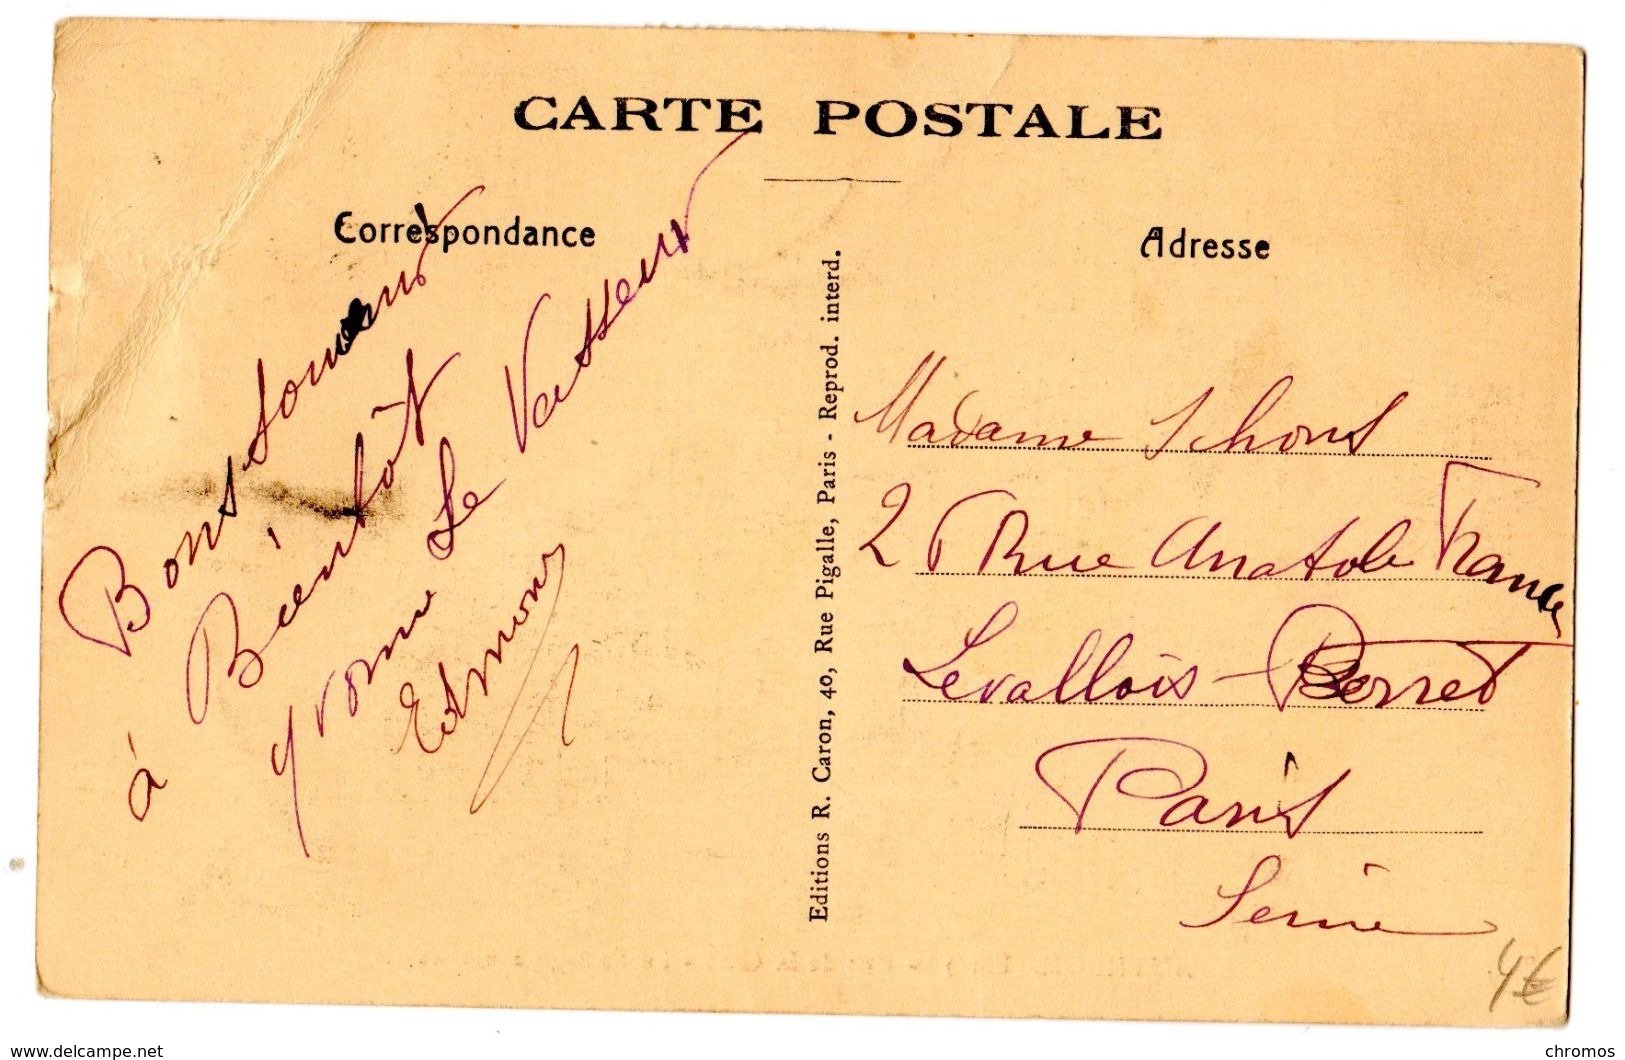 CARTE POSTALE
Correspondance
Bons souvenirs
à Bientôt
Yvonne Le Vasseur
Edmond
Editions R. Caron, 40, Rue Pigalle, Paris - Reprod. interd.
Adresse
Madame Schons
25 Rue Anatole France
Levallois-Perret
Paris
Seine
4€
www.delcampe.net
chromos